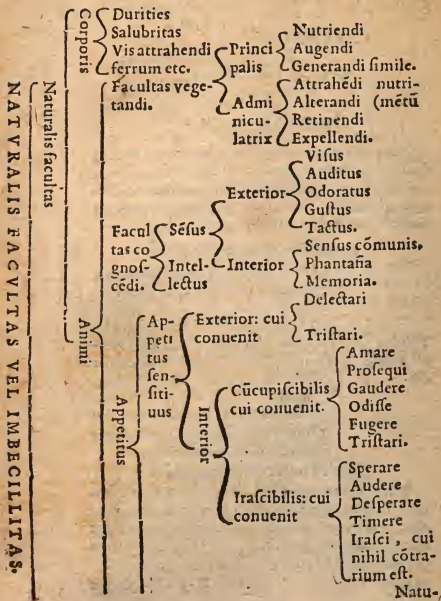 NATVRALIS FACVLTAS VEL IMBECILLITAS.
Naturalis facultas
Corporis
Durities
Salubritas
Vis attrahendi
ferrum etc.
Facultas vege-
tandi.
Princi
palis
Nutriendi
Augendi
Generandi ſimile.
Admi
nicu-
latrix
Attrahēdi nutri-
Alterandi (mētū
Retinendi
Expellendi.
Animi
Facul
tas co
gnoſ-
cēdi.
Sēſus
Intel-
lectus
Exterior
Viſus
Auditus
Odoratus
Guſtus
Tactus.
Interior
Senſus cōmunis.
Phantaſia
Memoria.
Appetitus
Ap-
peti
tus
ſen-
ſiti-
uus
Exterior: cui
conuenit
Delectari
Triſtari.
Interior
Cūcupiſcibilis
cui conuenit.
Amare
Proſequi
Gaudere
Odiſſe
Fugere
Triſtari.
Iraſcibilis: cui
conuenit
Sperare
Audere
Deſperare
Timere
Iraſci, cui
nihil cōtra-
rium eſt.
Natu-